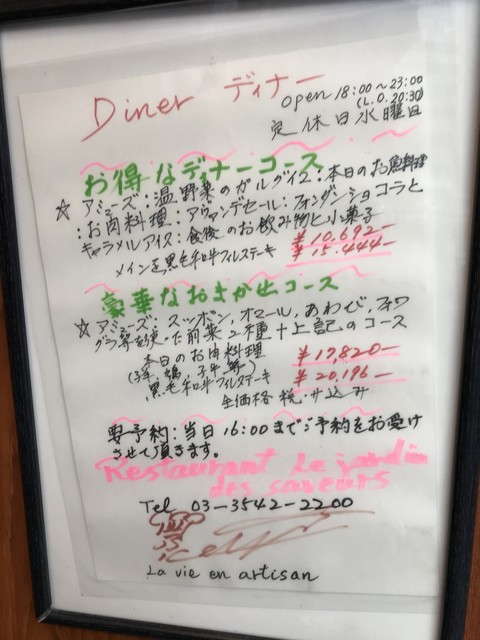 Diner ディナー
open 18:00～23:00
(L.O. 20:30)
定休日 水曜日
お得なディナーコース
☆ アミューズ:温野菜のガルグイユ:本日のお魚料理
:お肉料理:アヴァンデセール:フォンダンショコラと
キャラメルアイス:食後のお飲み物と小菓子
¥10.692-
メインを黒毛和牛フィレステーキ ¥15.444-
豪華なおまかせコース
☆ アミューズ:スッポン,オマール,あわび,フォワ
グラ等を使った前菜2種+上記のコース
本日のお肉料理 ¥17,820-
黒毛和牛フィレステーキ ¥20,196-
全価格 税・サ込み
要予約:当日16:00までご予約をお受け
させて頂きます。
Restaurant Le jardin
des saveurs
Tel 03-3542-2200
La vie en artisan